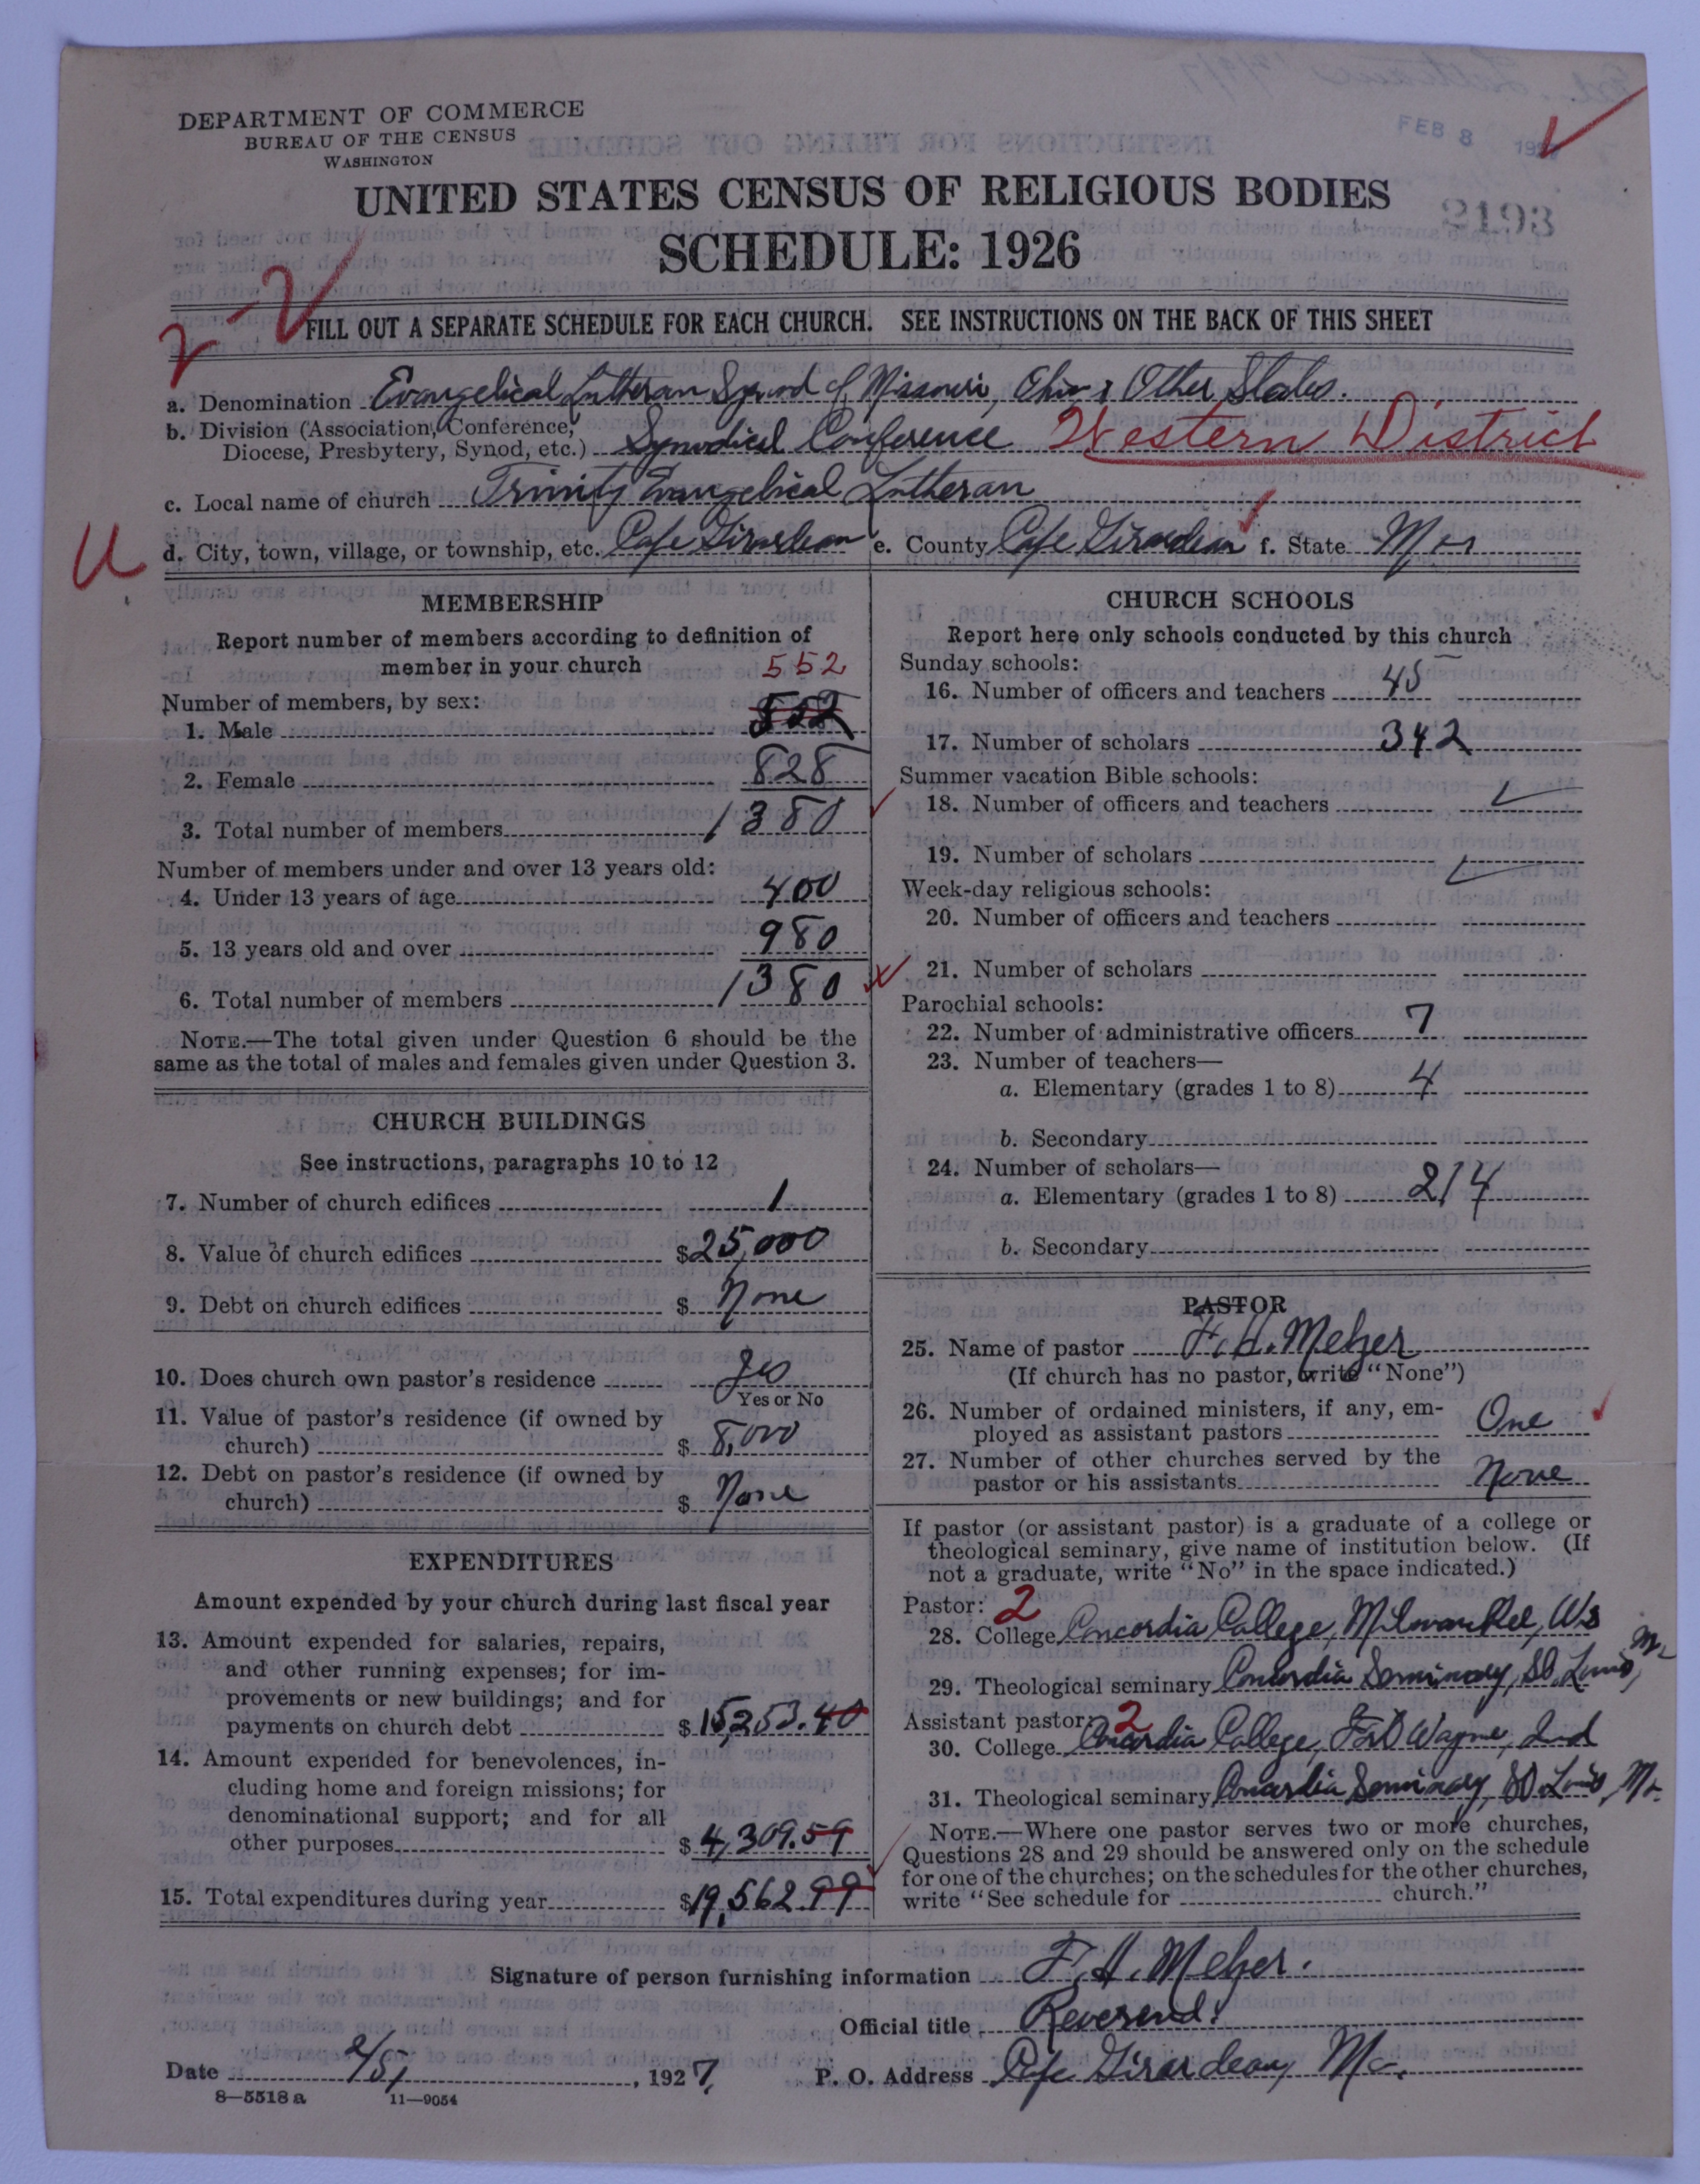 DEPARTMENT OF COMMERCE
BUREAU OF THE CENSUS
WASHINGTON
FEB 8
2193
UNITED STATES CENSUS OF RELIGIOUS BODIES
SCHEDULE: 1926
2-2
FILL OUT A SEPARATE SCHEDULE FOR EACH CHURCH. SEE INSTRUCTIONS ON THE BACK OF THIS SHEET
a. Denomination Evangelical Lutheran Synod of Missouri, Ohio & Other States.
b. Division (Association, Conference,
Diocese, Presbytery, Synod, etc.) Synodical Conference Western District
c. Local name of church Trinity Evangelical Lutheran
U
d. City, town, village, or township, etc. Cape Girardeau e. County Cape Girardeau f. State Mo
MEMBERSHIP
Report number of members according to definition of
member in your church 552
Number of members, by sex:
1. Male 552
2. Female 828
3. Total number of members 1380
Number of members under and over 13 years old:
4. Under 13 years of age 400
5. 13 years old and over 980
6. Total number of members 1380
NOTE.—The total given under Question 6 should be the
same as the total of males and females given under Question 3.
CHURCH BUILDINGS
See instructions, paragraphs 10 to 12
7. Number of church edifices 1
8. Value of church edifices $25,000
9. Debt on church edifices $ None
10. Does church own pastor's residence yes
Yes or No
11. Value of pastor's residence (if owned by
church) $ 8,000
12. Debt on pastor's residence (if owned by
church) $ None
EXPENDITURES
Amount expended by your church during last fiscal year
13. Amount expended for salaries, repairs,
and other running expenses; for im-
provements or new buildings; and for
payments on church debt $15,253.40
14. Amount expended for benevolences, in-
cluding home and foreign missions; for
denominational support; and for all
other purposes $4,309.59
15. Total expenditures during year $19,562.99
CHURCH SCHOOLS
Report here only schools conducted by this church
Sunday schools:
16. Number of officers and teachers 45
17. Number of scholars 342
Summer vacation Bible schools:
18. Number of officers and teachers
19. Number of scholars
Week-day religious schools:
20. Number of officers and teachers
21. Number of scholars
Parochial schools:
22. Number of administrative officers 7
23. Number of teachers—
a. Elementary (grades 1 to 8) 4
b. Secondary
24. Number of scholars—
a. Elementary (grades 1 to 8) 214
b. Secondary
PASTOR
25. Name of pastor F. H. Melzer
(If church has no pastor, write "None")
26. Number of ordained ministers, if any, em-
ployed as assistant pastors One
27. Number of other churches served by the
pastor or his assistants None
If pastor (or assistant pastor) is a graduate of a college or
theological seminary, give name of institution below. (If
not a graduate, write "No" in the space indicated.)
Pastor: 2
28. College Concordia College, Milwaukee, Wis
29. Theological seminary Concordia Seminary, St. Louis, Mo
Assistant pastor: 2
30. College Concordia College, Fort Wayne, Ind
31. Theological seminary Concordia Seminary, St. Louis, Mo.
NOTE.—Where one pastor serves two or more churches,
Questions 28 and 29 should be answered only on the schedule
for one of the churches; on the schedules for the other churches,
write "See schedule for church."
Signature of person furnishing information F. H. Melzer.
Official title Reverend.
Date 2/5, 1927. P. O. Address Cape Girardeau, Mo.
8—5518 a 11—9054